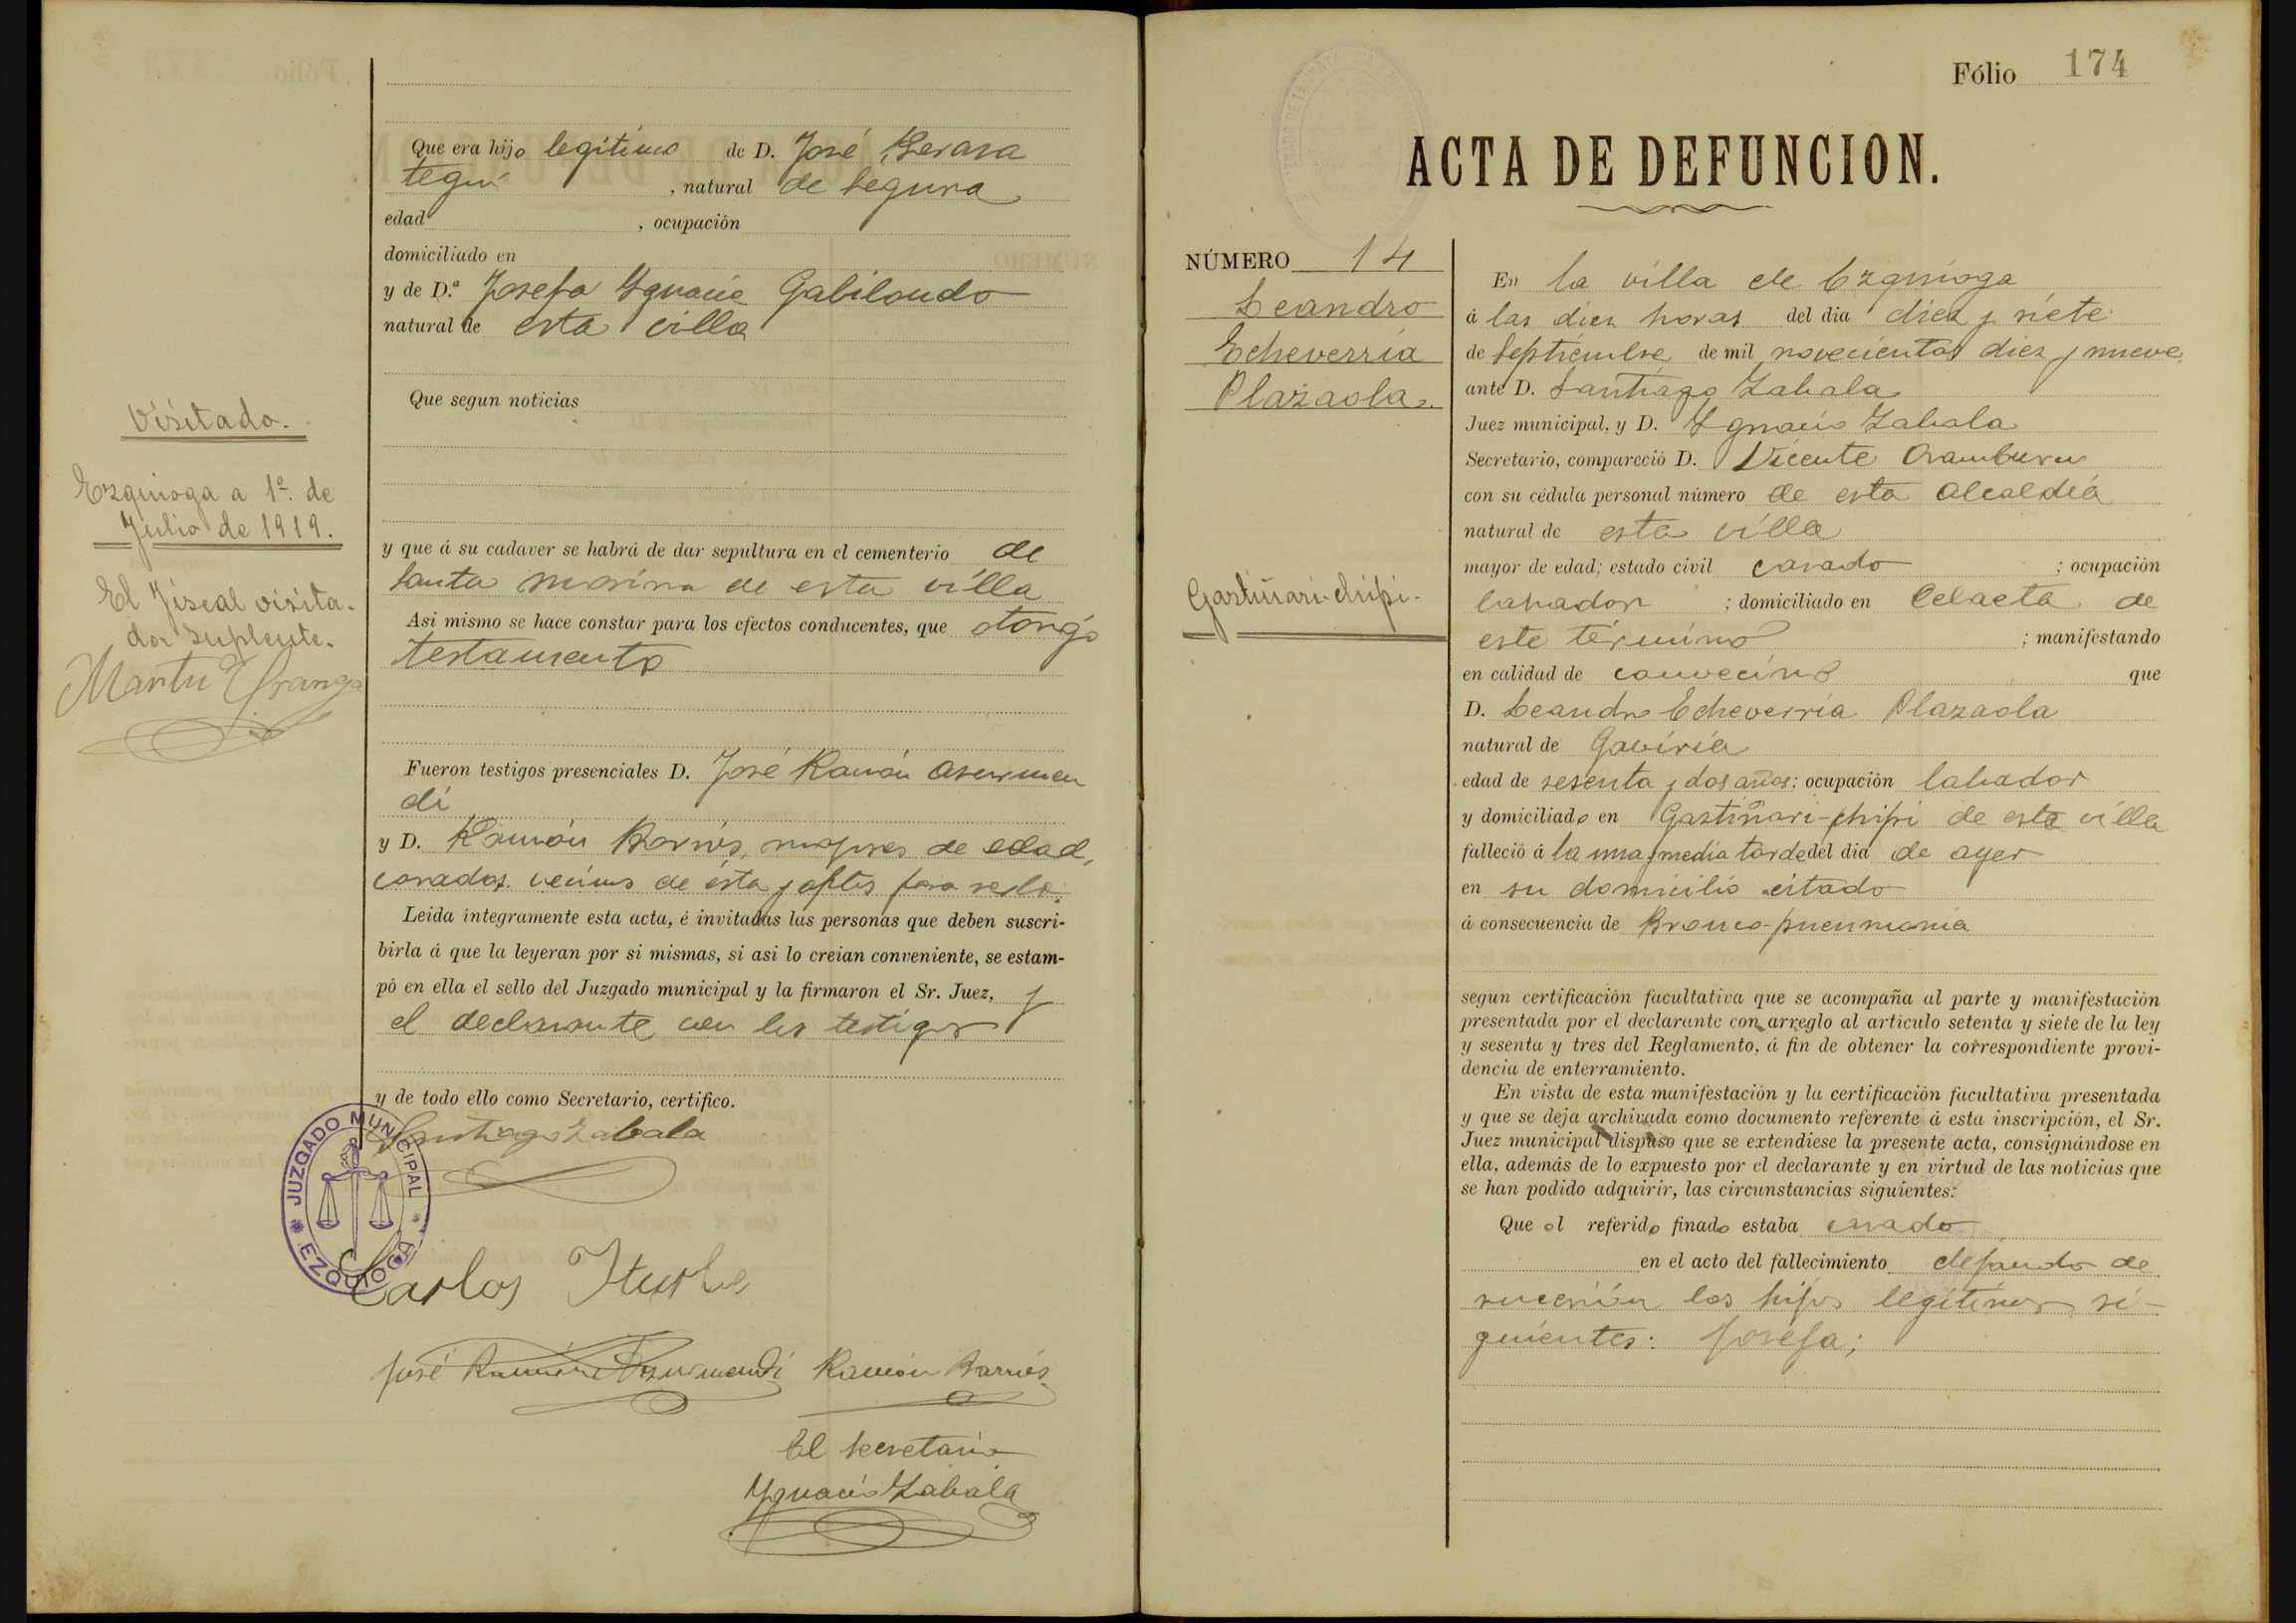 Que era hijo legítimo de D. José Berasa
tegui, natural de Segura
edad , ocupación
domiciliado en
y de D.ª Josefa Ygnacia Gabilondo
natural de esta villa
Que segun noticias
Visitado.
Ezquioga a 1º. de
Julio de 1919.
El Fiscal visita-
dor suplente.
y que á su cadaver se habrá de dar sepultura en el cementerio de
Santa Marina de esta villa
Asi mismo se hace constar para los efectos conducentes, que otorgó
testamento
Fueron testigos presenciales D. José Ramón Asurmen
di
y D. Ramón Barriós, mayores de edad,
casados, vecinos de ésta y aptos para serlo.
Leida íntegramente esta acta, é invitadas las personas que deben suscri-
birla á que la leyeran por si mismas, si asi lo creian conveniente, se estam-
pó en ella el sello del Juzgado municipal y la firmaron el Sr. Juez, y
el declarante con los testigos
y de todo ello como Secretario, certifico.
Santiago Zabala
JUZGADO MUNICIPAL
EZQUIOGA
Carlos Iturbe
José Ramón Asurmendi Ramón Barriós
El Secretario
Ygnacio Zabala
Fólio 174
ACTA DE DEFUNCION.
NÚMERO 14
Leandro
Echeverría
Plazaola.
Gastiñari-chipi-
En la villa de Ezquioga
á las diez horas del dia diez y siete
de Septiembre de mil novecientos diez y nueve
ante D. Santiago Zabala
Juez municipal, y D. Ygnacio Zabala
Secretario, compareció D. Vicente Aramburu
con su cédula personal número de esta Alcaldía
natural de esta villa
mayor de edad; estado civil casado ; ocupación
labrador ; domiciliado en Celaeta de
este término ; manifestando
en calidad de convecino que
D. Leandro Echeverría Plazaola
natural de Gaviria
edad de sesenta y dos años; ocupación labador
y domiciliado en Gastiñari-chipi de esta villa
falleció á la una y media tarde del dia de ayer
en su domicilio citado
á consecuencia de Bronco-pneumonía
segun certificación facultativa que se acompaña al parte y manifestación
presentada por el declarante con arreglo al artículo setenta y siete de la ley
y sesenta y tres del Reglamento, á fin de obtener la correspondiente provi-
dencia de enterramiento.
En vista de esta manifestación y la certificación facultativa presentada
y que se deja archivada como documento referente á esta inscripción, el Sr.
Juez municipal dispuso que se extendiese la presente acta, consignándose en
ella, además de lo expuesto por el declarante y en virtud de las noticias que
se han podido adquirir, las circunstancias siguientes:
Que el referido finado estaba casado
en el acto del fallecimiento dejando de
sucesión los hijos legítimos si-
guientes: Josefa;